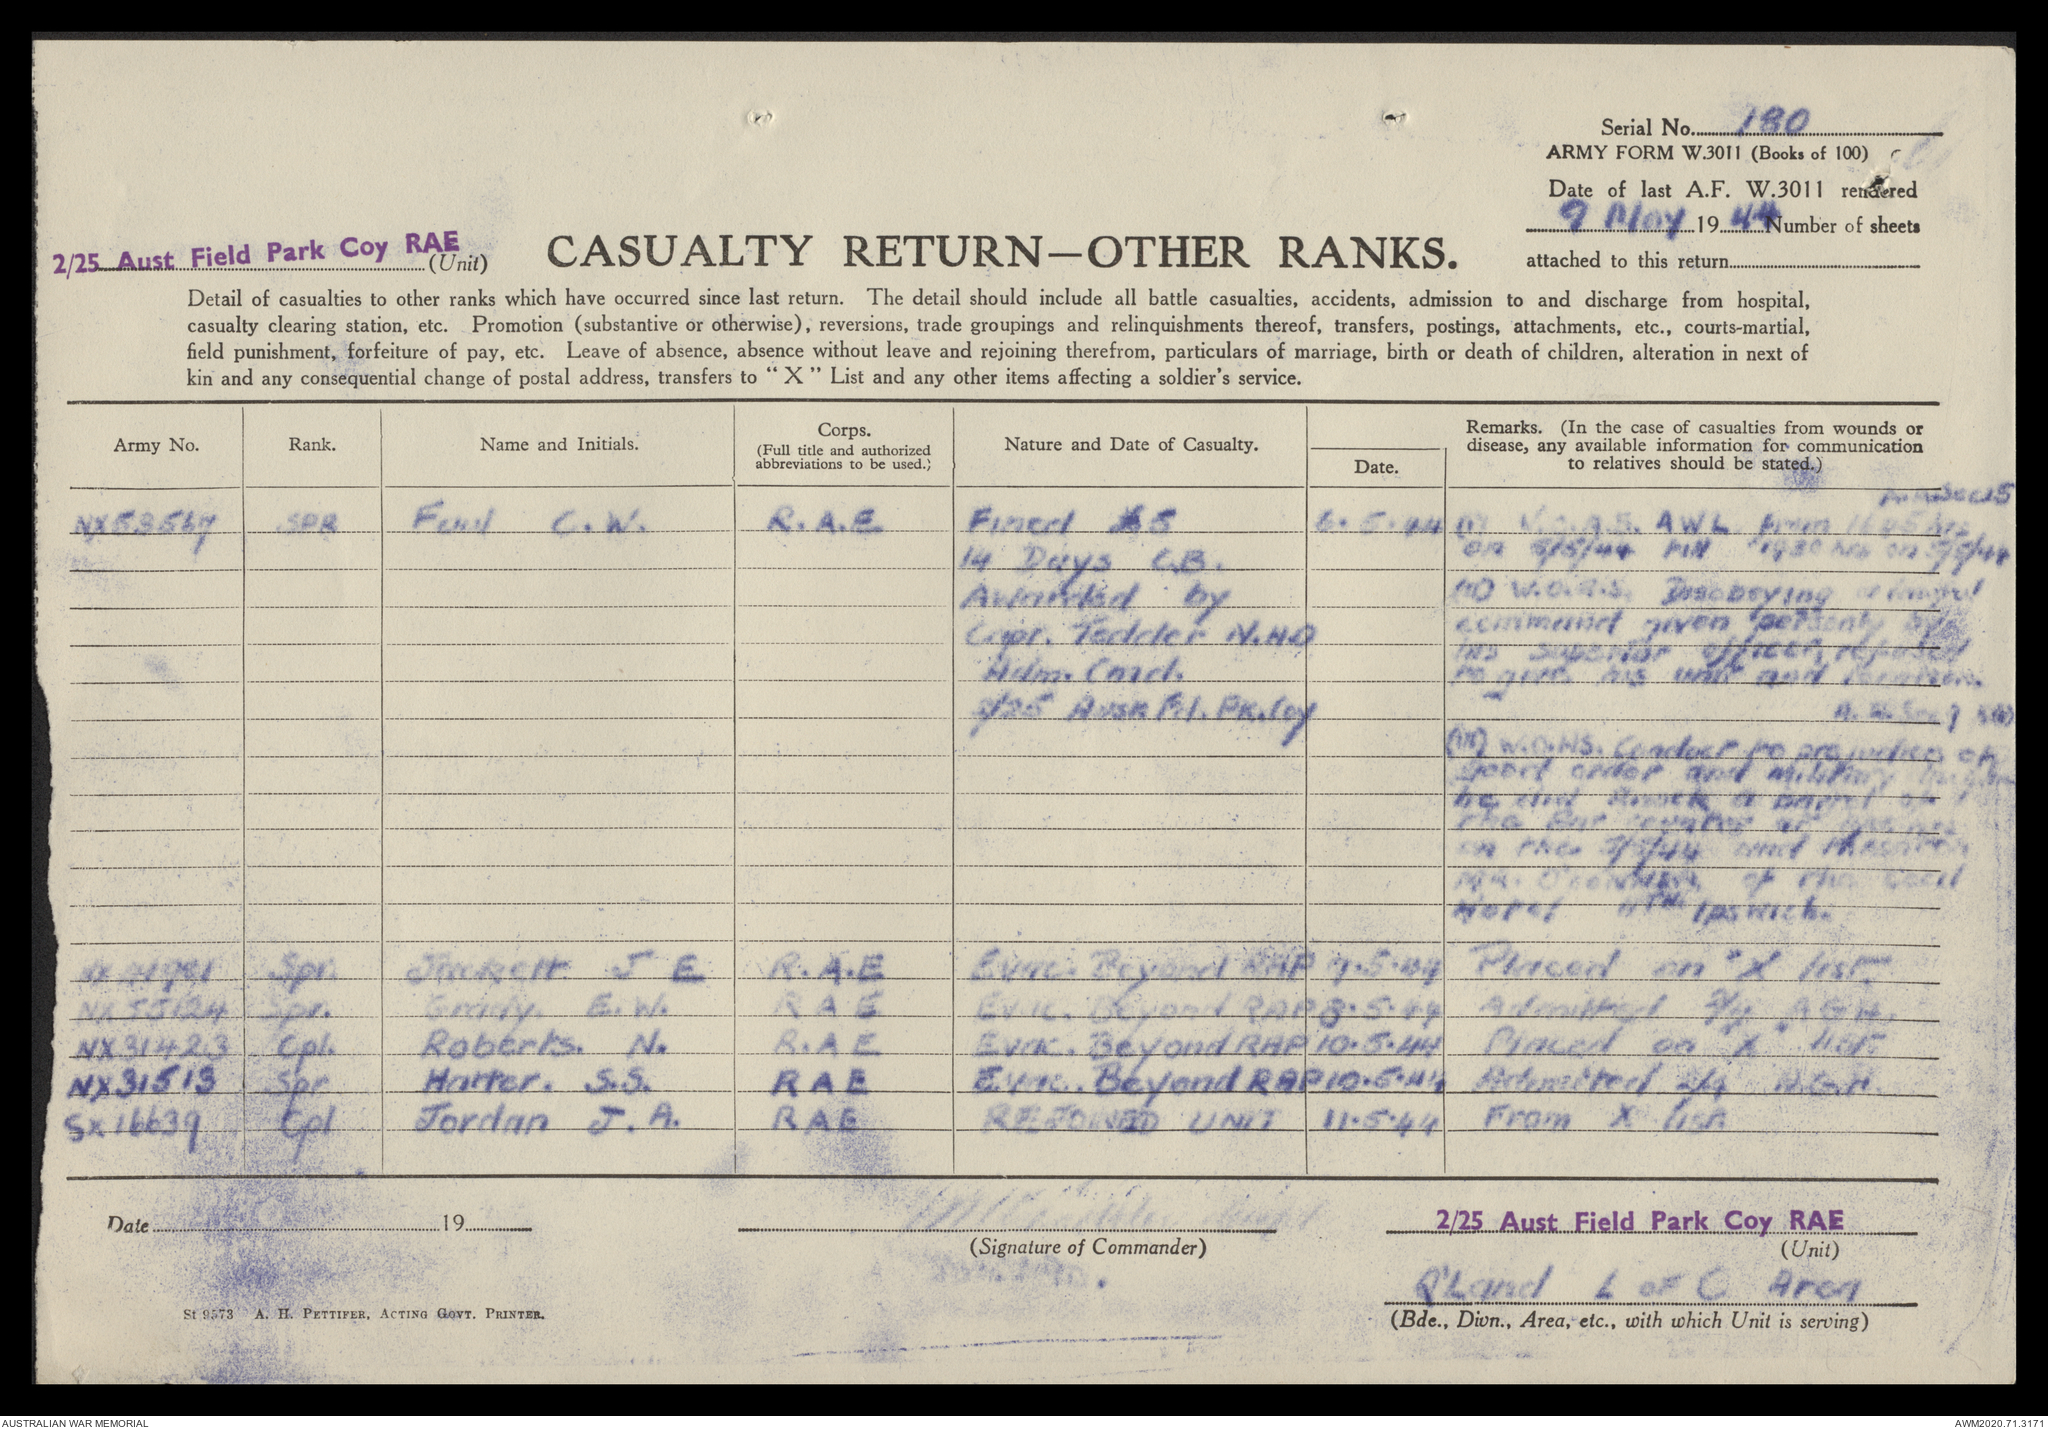 Serial No. 180
ARMY FORM W.3011 (Books of 100)
Date of last A.F. W.3011 rendered
9 May 1944 Number of sheets
attached to this return
2/25 Aust Field Park Coy RAE (Unit)
CASUALTY RETURN—OTHER RANKS.
Detail of casualties to other ranks which have occurred since last return. The detail should include all battle casualties, accidents, admission to and discharge from hospital,
casualty clearing station, etc. Promotion (substantive or otherwise), reversions, trade groupings and relinquishments thereof, transfers, postings, attachments, etc., courts-martial,
field punishment, forfeiture of pay, etc. Leave of absence, absence without leave and rejoining therefrom, particulars of marriage, birth or death of children, alteration in next of
kin and any consequential change of postal address, transfers to “ X ” List and any other items affecting a soldier's service.
Army No. Rank. Name and Initials. Corps. (Full title and authorized abbreviations to be used.) Nature and Date of Casualty. Date. Remarks. (In the case of casualties from wounds or disease, any available information for communication to relatives should be stated.)
SPR C. W. R.A.E Fined £5 6.5.44 (i) W.O.A.S. AWL from
on 5/5/44 till 1930 hrs on 5/5/44
14 Days C.B.
(ii) W.O.A.S. Disobeying a lawful
Awarded by
command given by
Capt. Tedder N.H.O
his superior officer, refused
Adm. Comd.
to give his unit and location.
2/25 Aust Fd. Pk. Coy
(iii) W.O.A.S. Conduct to prejudice of
good order and military
he did knock a
the Bar counter
on the 5/5/44 and
Mr. O'Connor of the
Hotel Nth Ipswich.
Spr. J E R.A.E Evac. Beyond RAP 9.5.44 Placed on "X" list
NX55124 Spr. Grady. E.W. R A E Evac. Beyond RAP 8.5.44 Admitted A.G.H.
NX31423 Cpl. Roberts. N. R.A E Evac. Beyond RAP 10.5.44 Placed on "X" list
NX31513 Spr Hatter. S.S. R A E Evac. Beyond RAP 10.5.44 Admitted A.G.H.
SX16639 Cpl Jordan J.A. R A E REJOINED UNIT 11.5.44 From X list
Date 19
(Signature of Commander)
2/25 Aust Field Park Coy RAE
(Unit)
Q'Land L of C Area
(Bde., Divn., Area, etc., with which Unit is serving)
St 9573 A. H. PETTIFER, ACTING GOVT. PRINTER.
AUSTRALIAN WAR MEMORIAL
AWM2020.71.3171